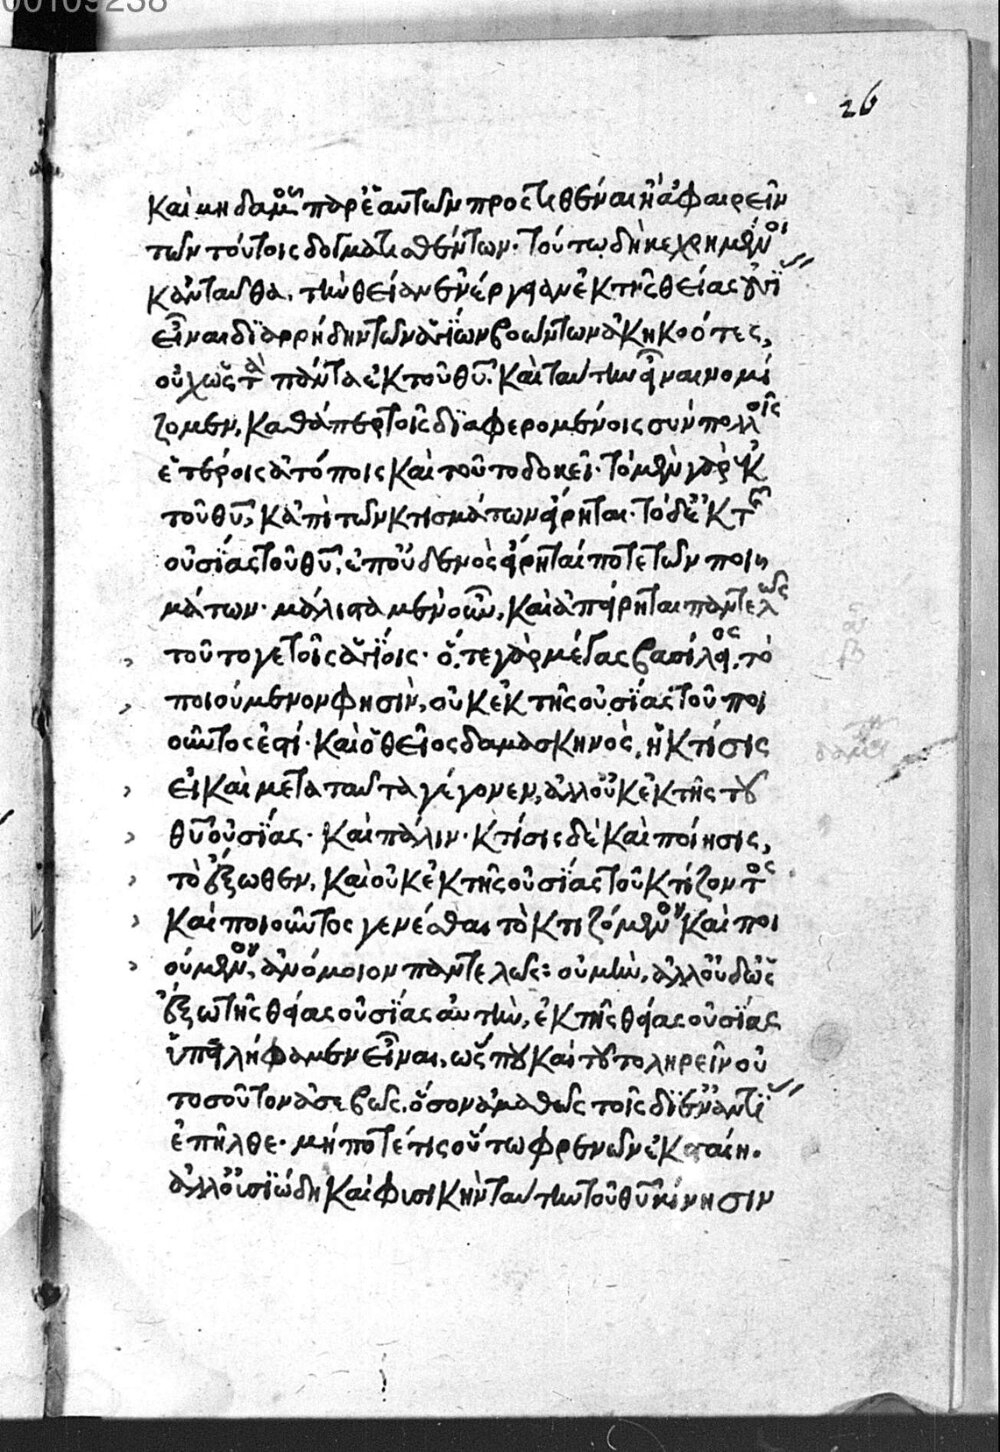 00109238
26
καὶ μηδαμοῦ παρ' ἑαυτῶν προστιθέναι ἢ ἀφαιρεῖν
τῶν τούτοις δογματισθέντων· τούτῳ δὴ κεχρημένοι
κἀνταῦθα, τὴν θείαν ἐνέργειαν ἐκ τῆς θείας οὐσί
εἶναι διαρρήδην τῶν ἁγίων βοώντων ἀκηκοότες,
οὐχ ὡς τὰ πάντα ἐκ τοῦ θυ. καὶ ταύτην εἶναι νομί
ζομεν, καθάπερ τοῖς διαφερομένοις σὺν πολλοῖς
ἑτέροις ἀτόποις καὶ τοῦτο δοκεῖ· τὸ μὲν γὰρ ἐκ
τοῦ θυ, κἀπὶ τῶν κτισμάτων εἴρηται· τὸ δὲ ἐκ τῆς
οὐσίας τοῦ θυ, ἐπ' οὐδενὸς εἴρηταί ποτε τῶν ποιη
μάτων· μάλιστα μὲν οὖν, καὶ ἀπείρηται παντελῶς
τοῦτο γε τοῖς ἁγίοις· ὅ, τε γὰρ μέγας βασίλειος, τὸ
ποιούμενον φησὶν, οὐκ ἐκ τῆς οὐσίας τοῦ ποι
οῦντος ἐστί· καὶ ὁ θεῖος δαμασκηνὸς, ἡ κτίσις
εἰ καὶ μετὰ ταῦτα γέγονεν, ἀλλ' οὐκ ἐκ τῆς τοῦ
θυ οὐσίας· καὶ πάλιν· κτίσις δὲ καὶ ποίησις,
τὸ ἔξωθεν, καὶ οὐκ ἐκ τῆς οὐσίας τοῦ κτίζοντος
καὶ ποιοῦντος γενέσθαι τὸ κτιζόμενον καὶ ποι
ούμενον, ἀνόμοιον παντελῶς: οὐ μὴν, ἀλλ' οὐδ' ὡς
ἔξω τῆς θείας οὐσίας αὐτὴν, ἐκ τῆς θείας οὐσίας
ὑπειλήφαμεν εἶναι, ὥς που καὶ τοῦτο ληρεῖν οὐ
τοσοῦτον ἀσεβῶς, ὅσον ἀμαθῶς τοῖς δι' ἐναντί
ἐπῆλθε· μήποτέ τις οὕτω φρενῶν ἐκσταίη.
ἀλλ' οὐσιώδη καὶ φυσικὴν ταύτην τοῦ θυ κίνησιν